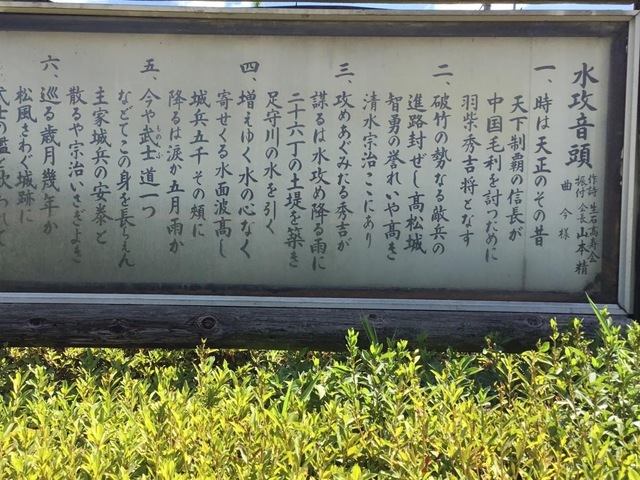 水攻音頭
作詩 生石高寿会
振付 会長 山本 精
曲 今様
一、時は天正のその昔
天下制覇の信長が
中国毛利を討つために
羽柴秀吉将となす
二、破竹の勢なる敵兵の
進路封ぜし高松城
智勇の誉れいや高き
清水宗治こゝにあり
三、攻めあぐみたる秀吉が
謀るは水攻め降る雨に
二十六丁の土堤を築き
足守川の水を引く
四、増えゆく水の心なく
寄せくる水面波高し
城兵五千その頬に
降るは涙か五月雨か
五、今や武士道一つ
ものゝふ
などてこの身を長らえん
主家城兵の安泰と
散るや宗治いさぎよき
六、巡る歳月幾年か
松風さわぐ城跡に
武士の鑑と